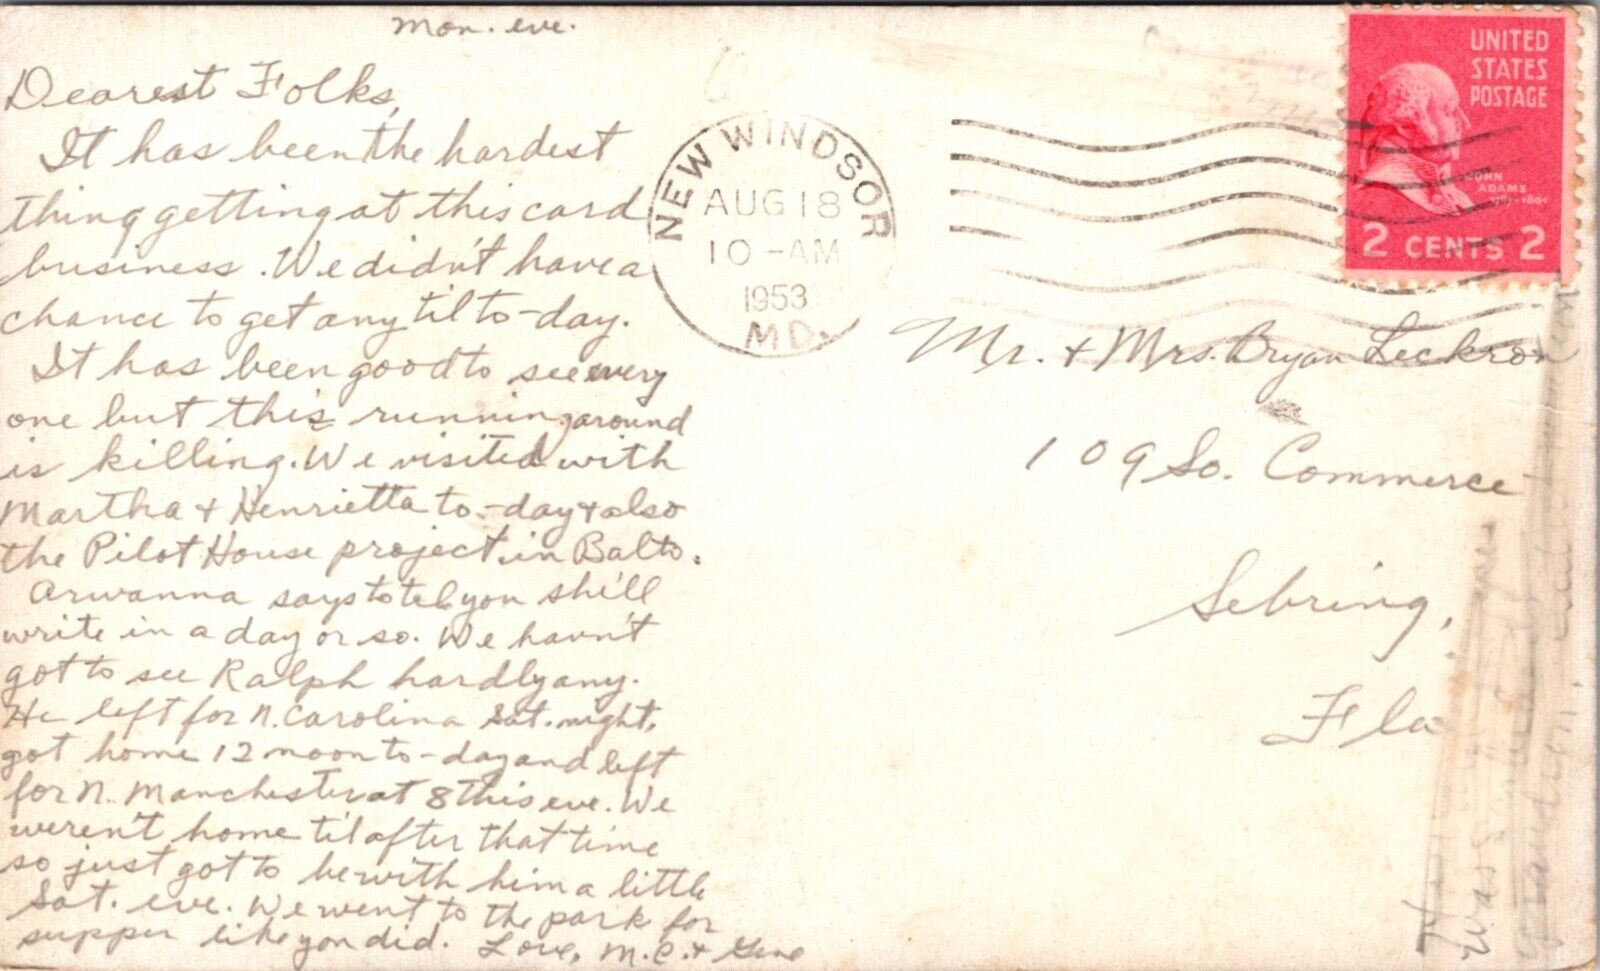 Mon. eve.
Dearest Folks,
It has been the hardest
thing getting at this card
business. We didn't have a
chance to get any til to-day.
It has been good to see every
one but this running around
is killing. We visited with
Martha + Henrietta to-day + also
the Pilot House project in Balto.
Arwanna says to tell you she'll
write in a day or so. We havn't
got to see Ralph hardly any.
He left for N. Carolina Sat. night,
got home 12 noon to-day and left
for N. Manchester at 8 this eve. We
weren't home til after that time
so just got to be with him a little
Sat. eve. We went to the park for
supper like you did. Love, M.C. + Gene
NEW WINDSOR
AUG 18
10-AM
1953
MD.
UNITED
STATES
POSTAGE
JOHN
ADAMS
2 CENTS 2
Mr. + Mrs. Bryan Leckron
109 So. Commerce
Sebring,
Fla
was